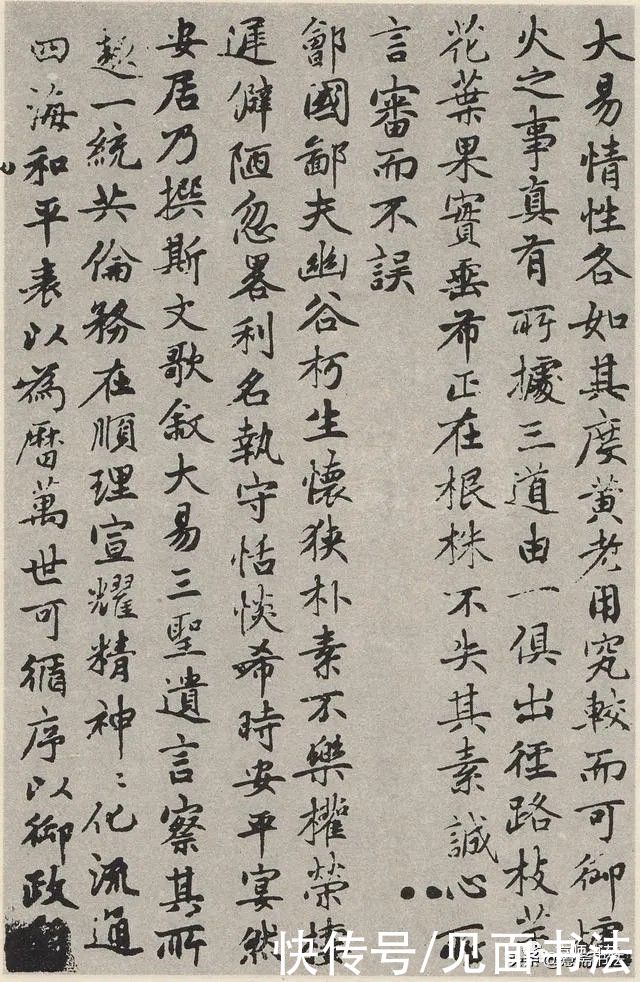 大易情性各如其度黄老用究較而可御爐
火之事真有所據三道由一俱出徑路枝莖
花葉果實垂布正在根株不失其素誠心所
言審而不誤
鄶國鄙夫幽谷朽生懷狹朴素不樂權榮棲
遲僻陋忽畧利名執守恬惔唏時安平宴然
安居乃撰斯文歌叙大易三聖遺言察其所
趍一統共倫務在順理宣耀精神〻化流通
四海和平表以為曆萬世可循序以御政
快传号/见面书法